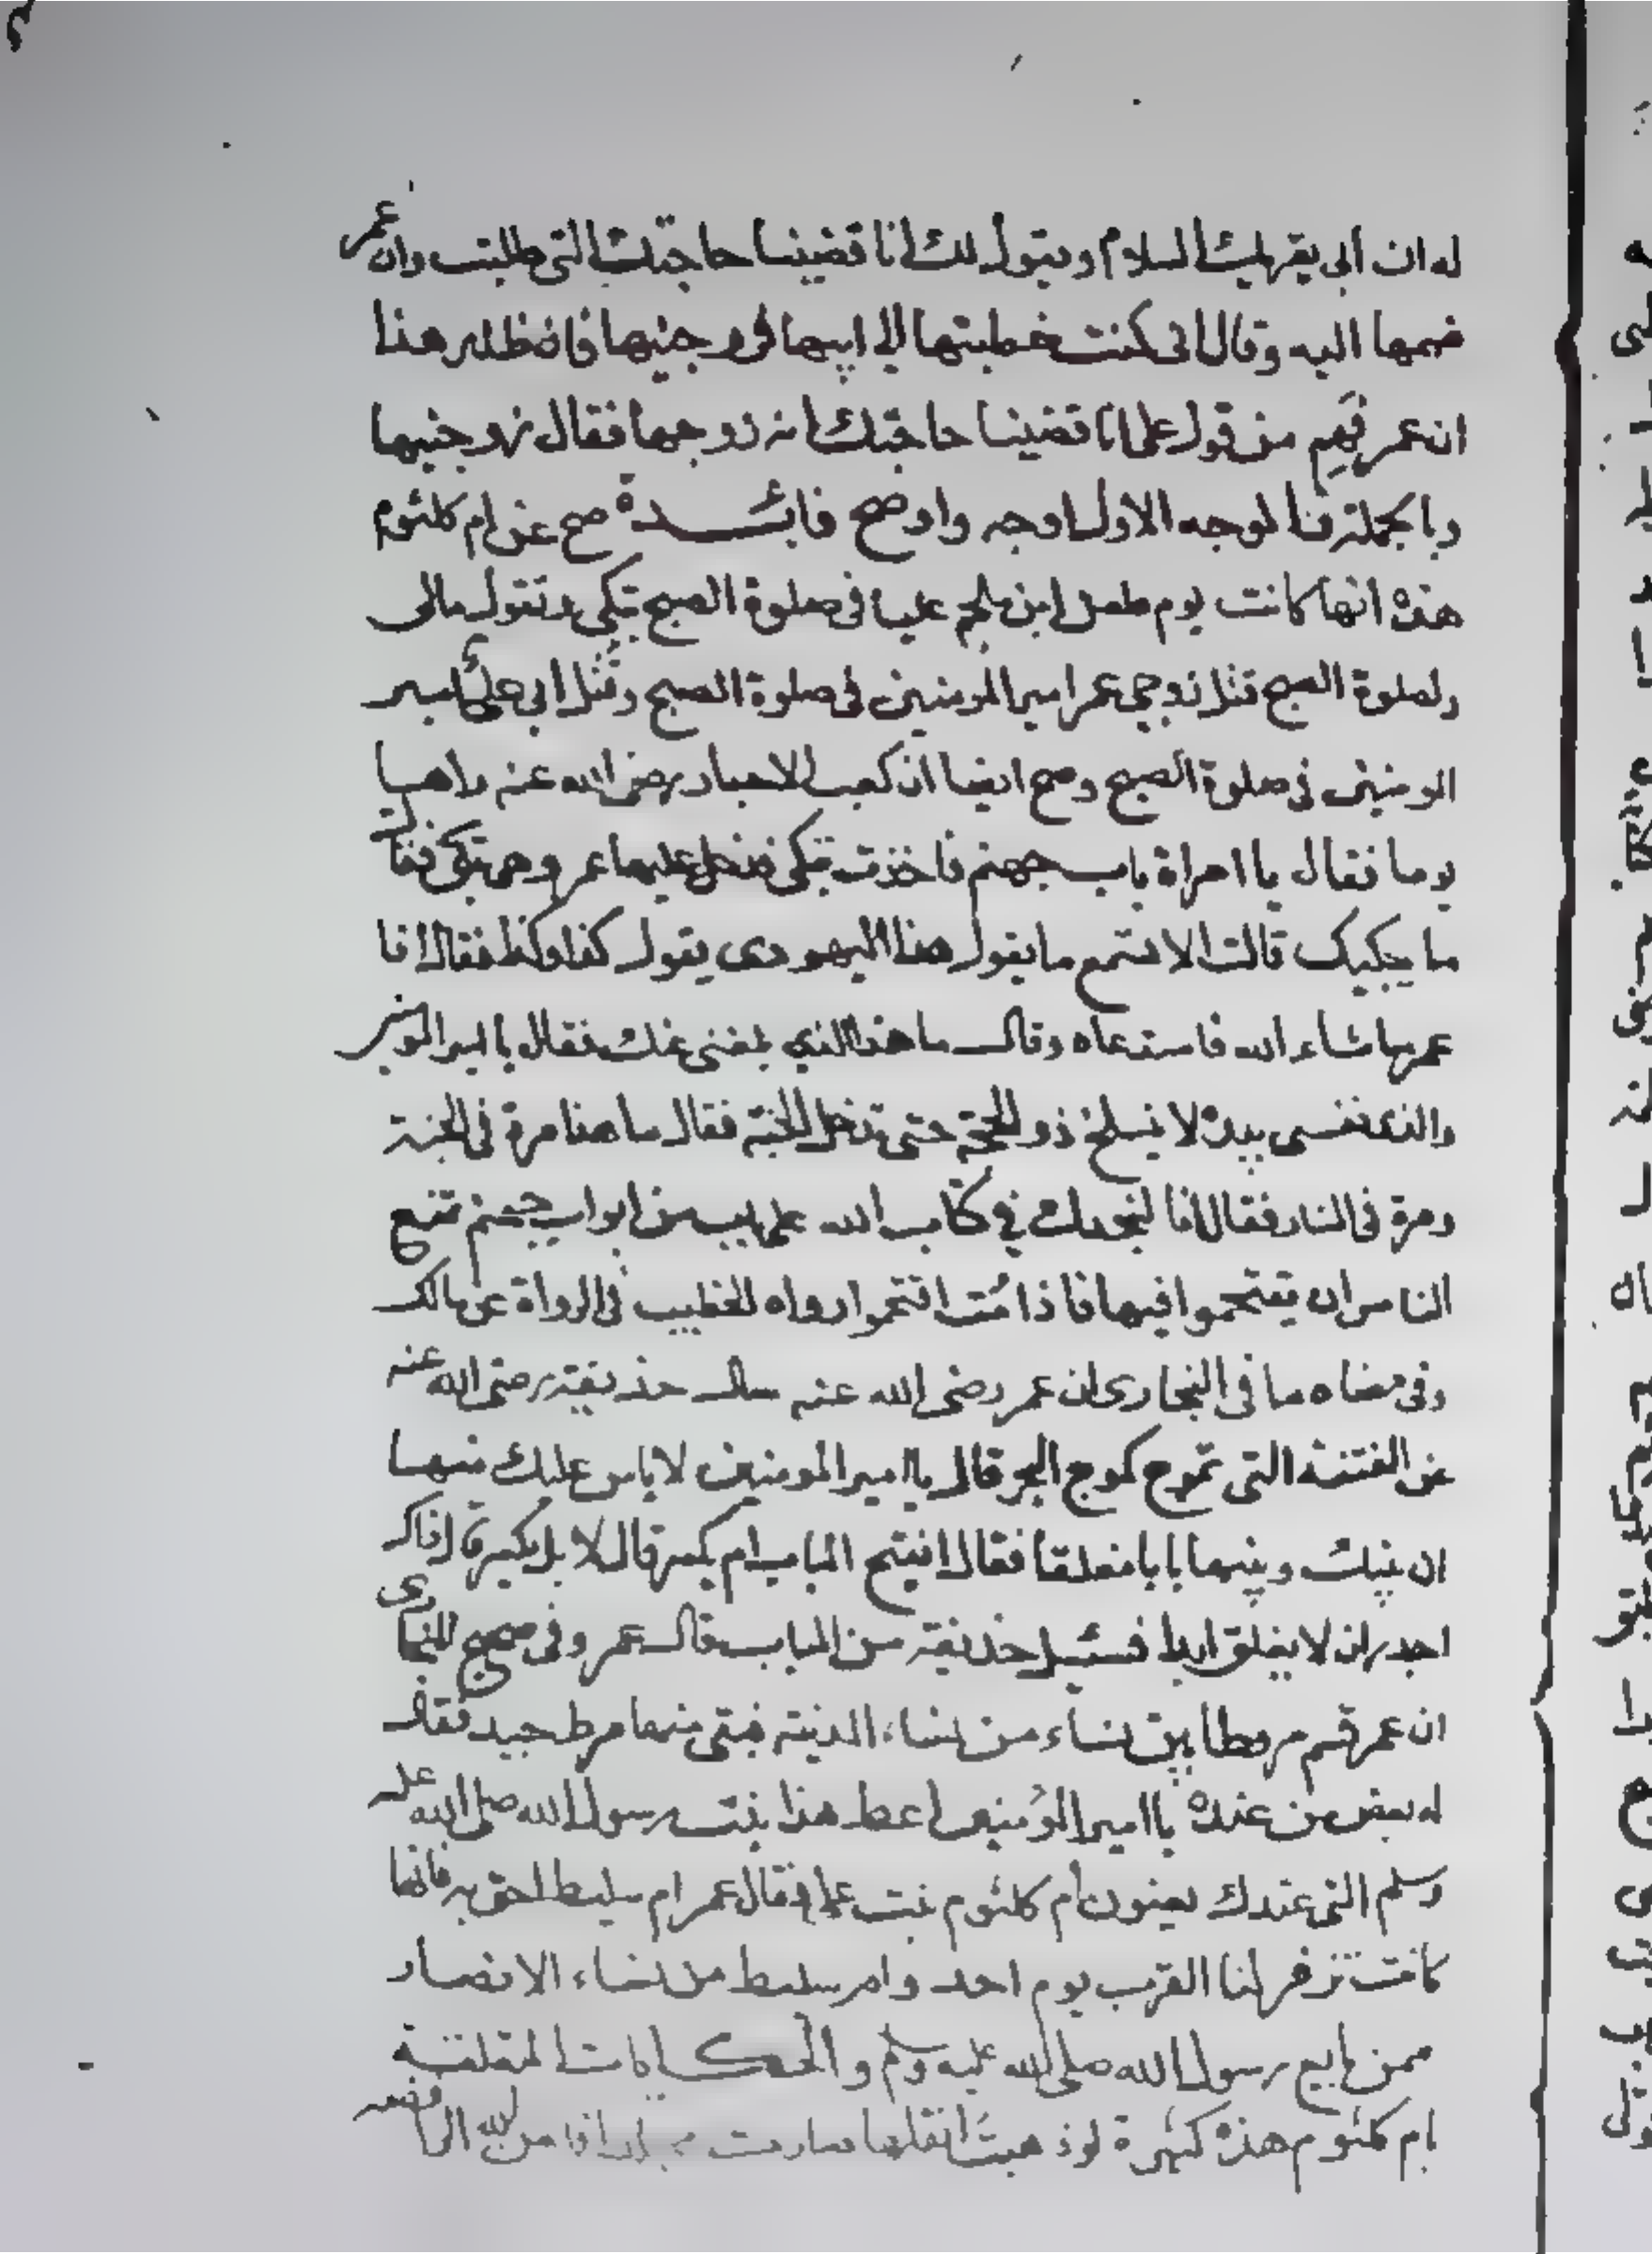 له ان ابى يقريك السلام ويقول لك انا قضينا حاجتك التى طلبت وان عمر
ضمها اليه وقال انى كنت خطبتها الى ابيها فزوجنيها فانظر هذا
ان عمر فهم من قول على انا قضينا حاجتك انه زوجها فقال زوجنيها
وبالجملة فالوجه الاول اوجه واوضح فائدة صح عن ام كلثوم
هذه انها كانت يوم طعن ابن ملجم عليا فى صلوة الصبح تبكى وتقول مالى
ولصلوة الصبح قتل زوجى عمر امير المومنين فى صلوة الصبح وقتل ابى على امير
المومنين فى صلوة الصبح وصح ايضا ان كعب الاحبار رضى الله عنه راها
يوما فقال يا امراة باب جهنم فاخذت تبكى فدخل عليها عمر وهى تبكى فقال
ما يبكيك قالت الا تسمع ما يقول هذا اليهودى يقول كذا وكذا فقال انا
عمر ما شاء الله فاستدعاه وقال ما هذا الذى بلغنى عنك فقال يا امير المومنين
والذى نفسى بيده لا ينسلخ ذو الحجة حتى تدخل الجنة فقال ما هذا مرة فى الجنة
ومرة فى النار فقال انا لنجدك في كتاب الله على باب من ابواب جهنم تمنع
الناس ان يقتحموا فيها فاذا مُت اقتحموا رواه الخطيب فى الرواة عن مالك
وفى معناه ما فى البخارى ان عمر رضى الله عنه سال حذيفة رضى الله عنه
عن الفتنة التى تموج كموج البحر قال يا امير المومنين لا باس عليك منها
ان بينك وبينها بابا مغلقا فقال ايفتح الباب ام يكسر قال لا بل يكسر قال ذاك
اجدر ان لا يغلق ابدا فسئل حذيفة من الباب قال عمر وفى صحيح البخارى
ان عمر قسم مروطا بين نساء من نساء المدينة فبقى منها مرط جيد فقال
له بعض من عنده يا امير المؤمنين اعط هذا بنت رسول الله صلى الله عليه
وسلم التى عندك يعنون ام كلثوم بنت على فقال عمر ام سليط احق به فانها
كانت تزفر لنا القرب يوم احد وام سليط من نساء الانصار
ممن بايع رسول الله صلى الله عليه وسلم والحكايات المتعلقة
بام كلثوم هذه كثيرة لو ذهبت انقلها صارت